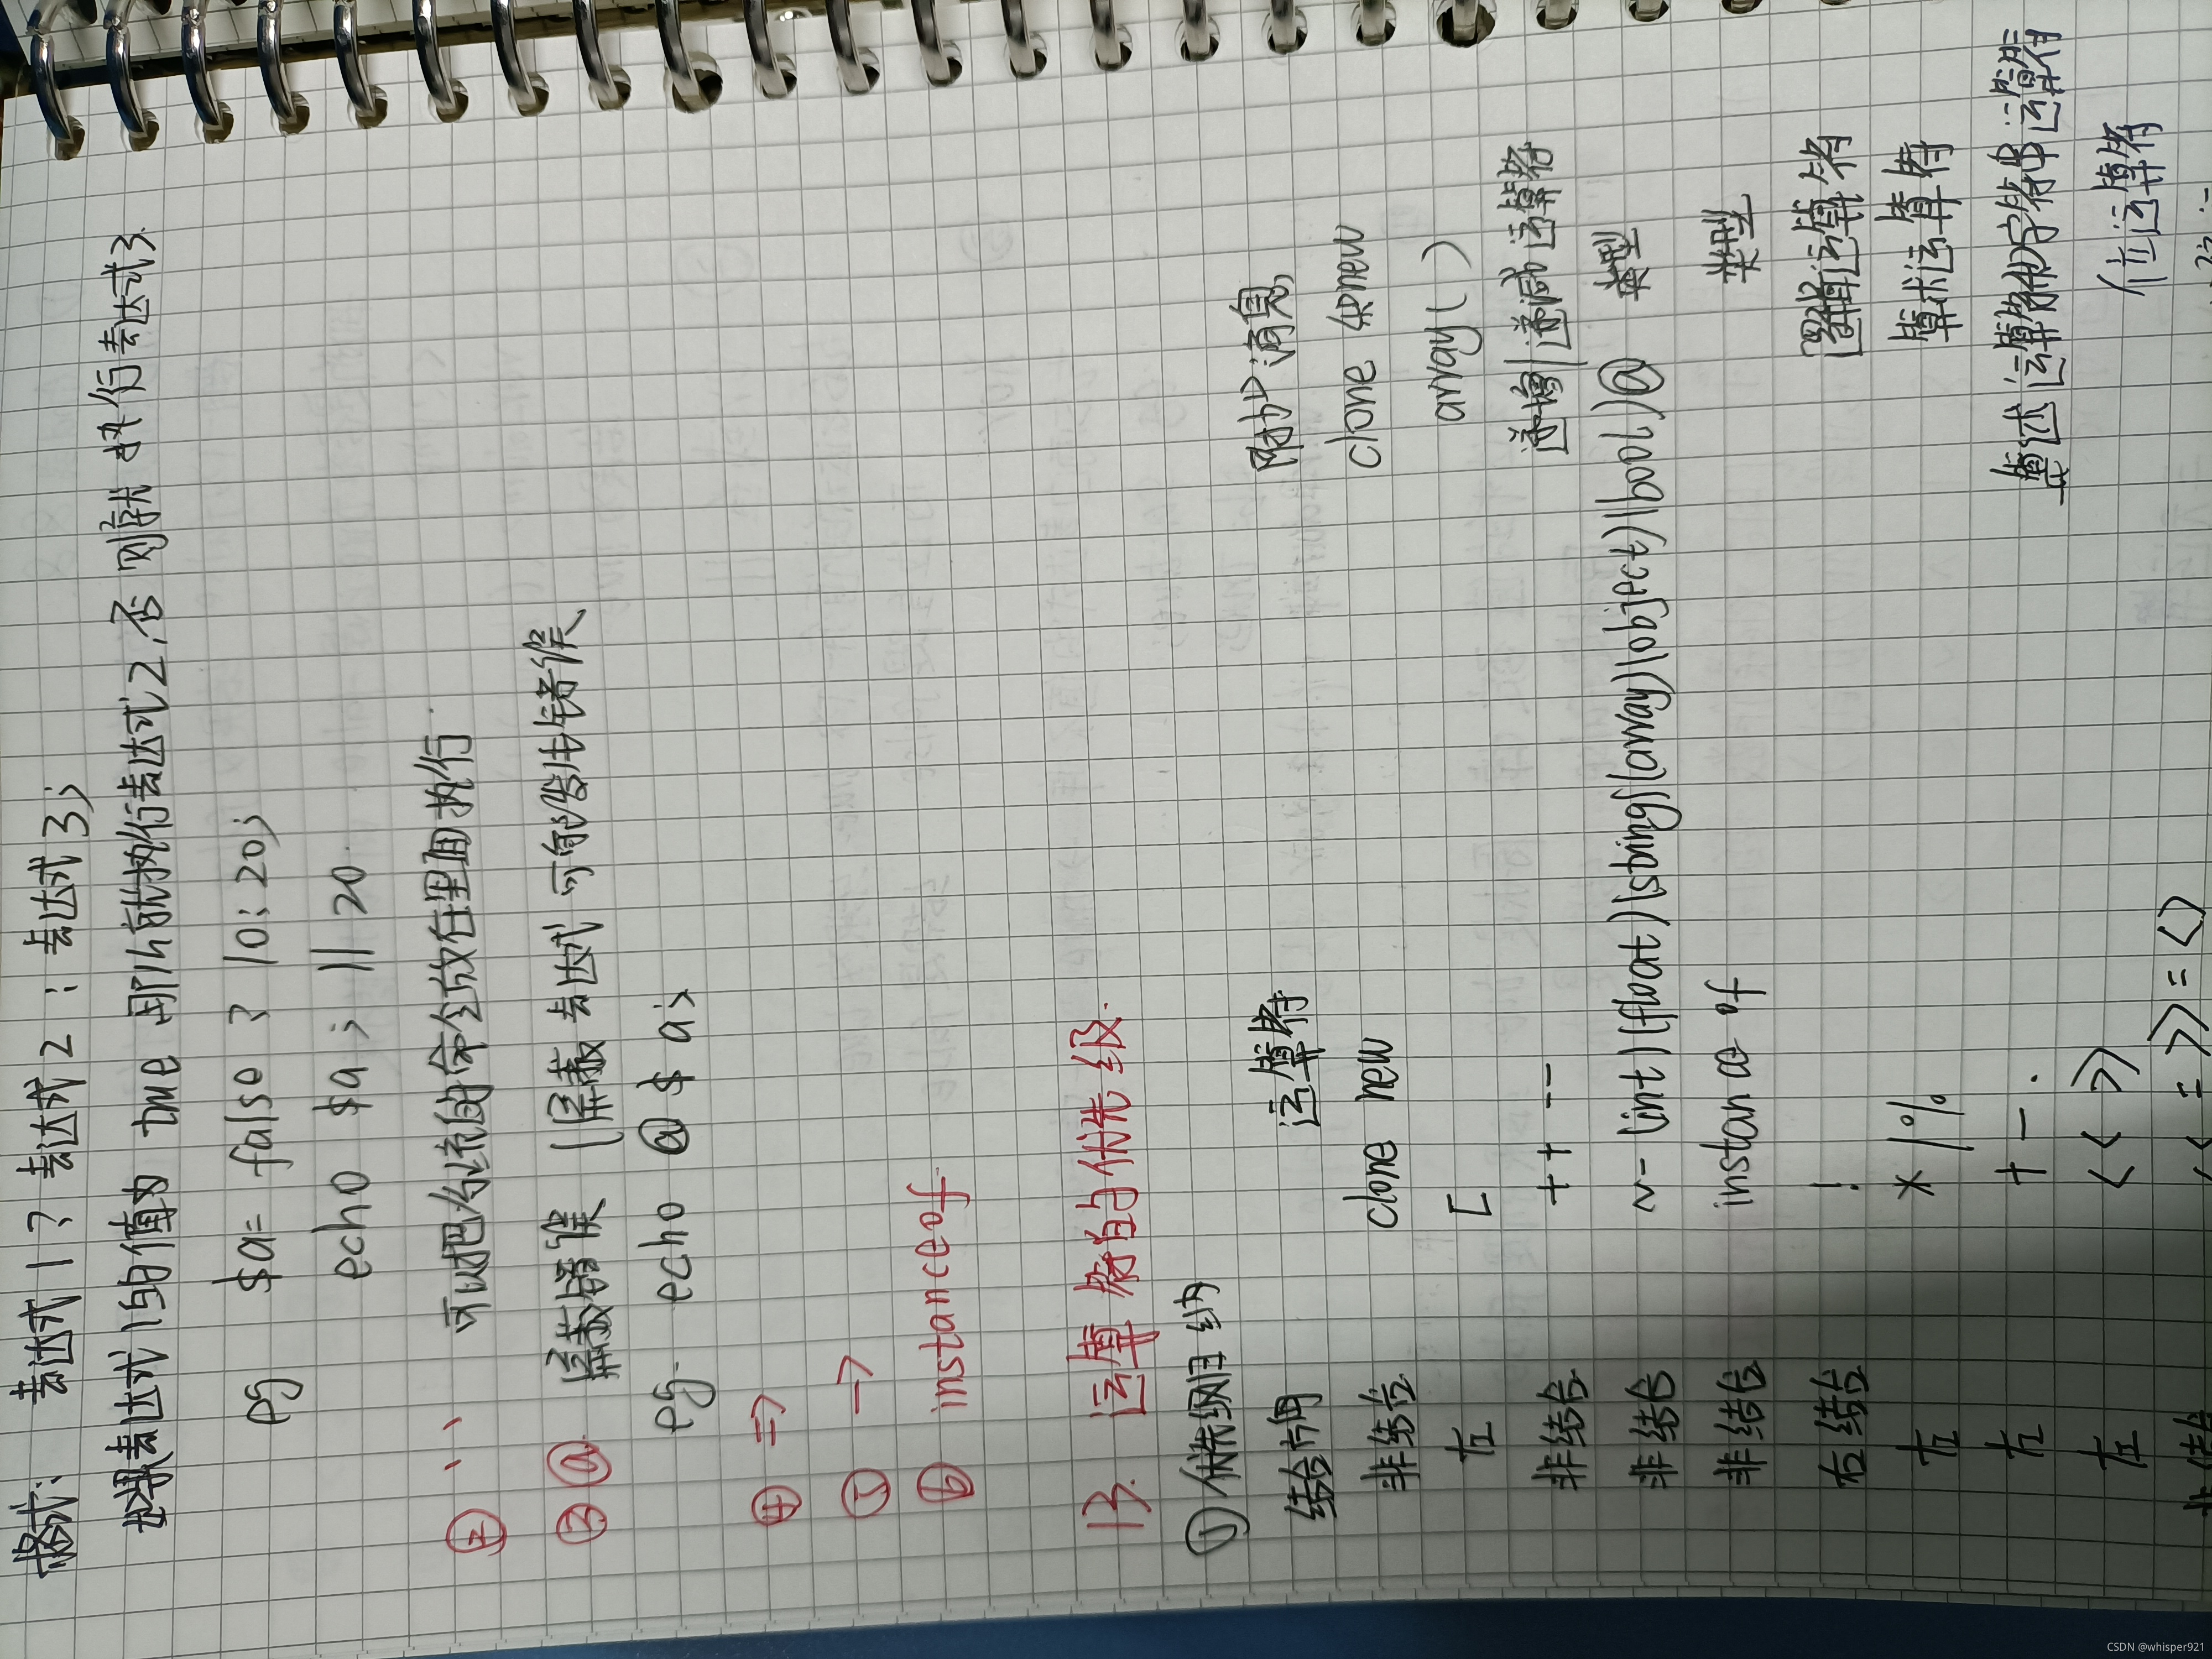 格式: 表达式1? 表达式2 : 表达式3;
如果表达式1的值为 true 那么就执行表达式2,否则就 执行表达式3.
eg $a= false ? 10: 20;
echo $a; || 20.
② ` `
可以把约流的命令放在里面执行.
③ @ 屏蔽错误 (屏蔽 表达式 可能发生错误
eg. echo @$a;
④ =>
⑤ ->
⑥ instanceof.
13. 运算符的优先级.
① 优先级纲
结合方向 运算符 附加消息
非结合 clone new clone 和new
左 [ array()
非结合 ++ -- 递增|递减运算符
非结合 ~- (int)(float)(string)(array)(object)(bool)@ 类型
非结合 instan of 类型
右结合 ! 逻辑运算符
左 * / % 算术运算符
左 + - . 算术运算符和字符串运算符
左 << >> 位运算符
非结合 < <= > >= <>
CSDN @whisper921